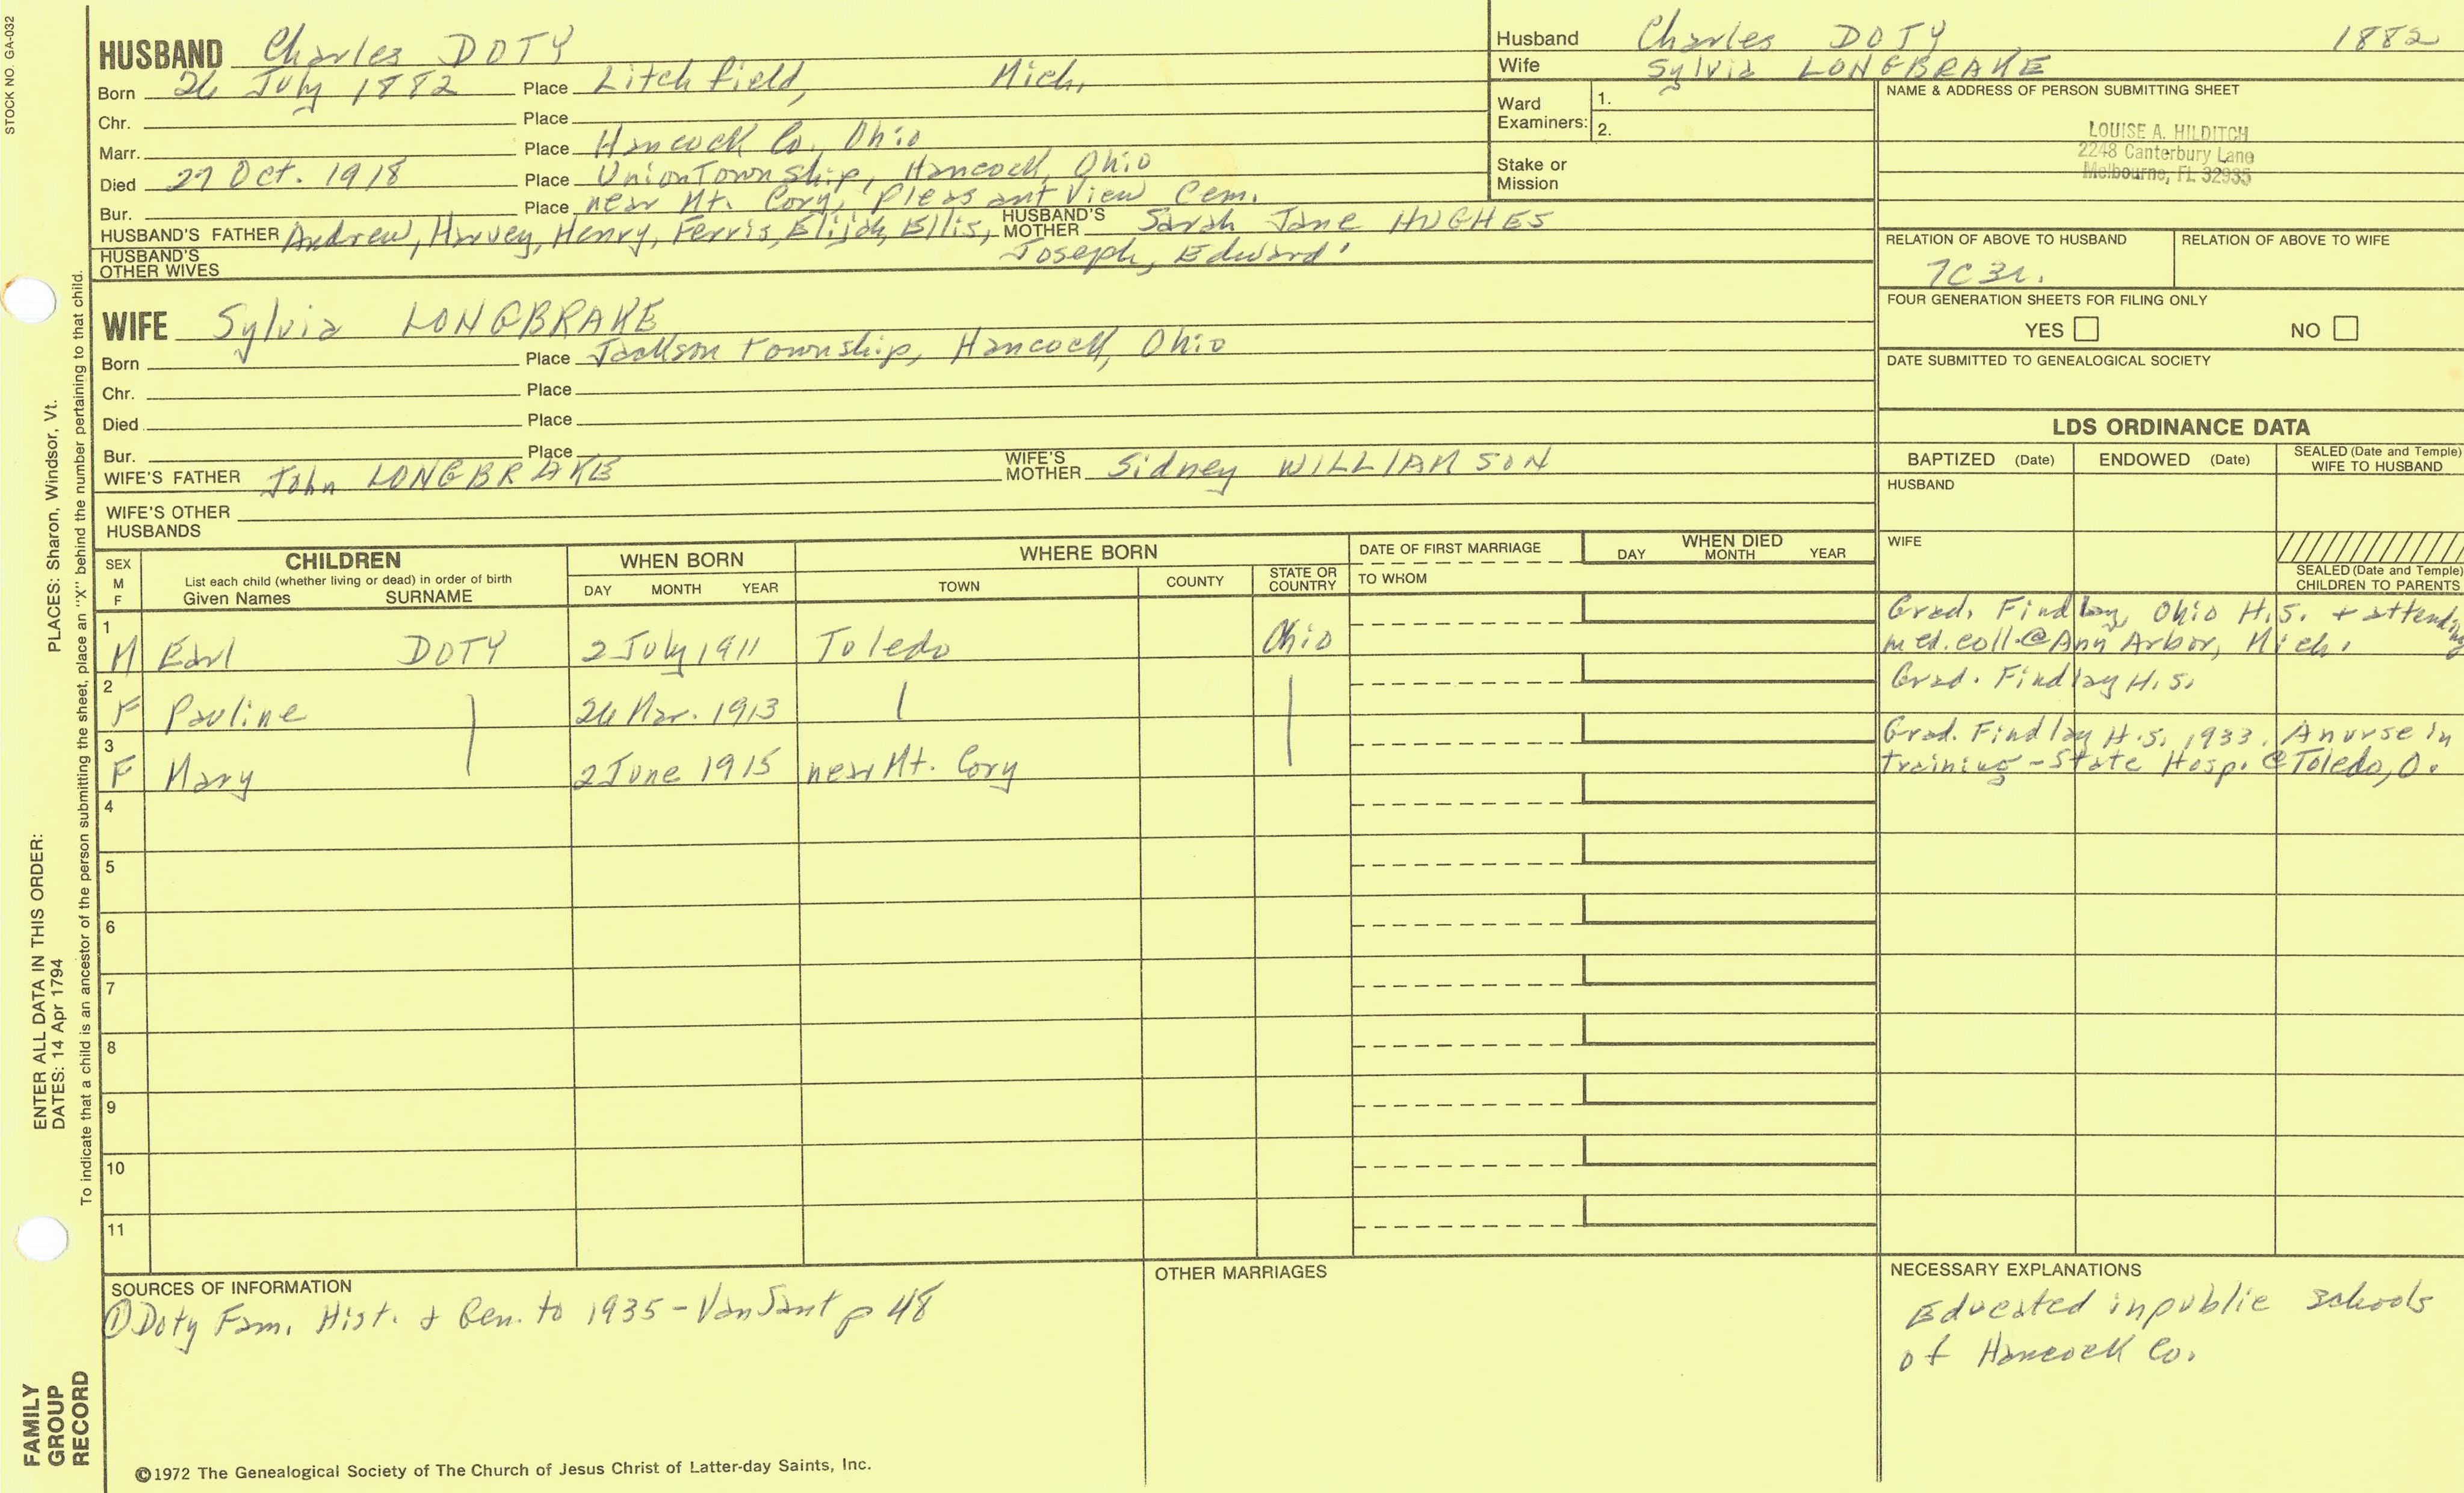 STOCK NO. GA-032
HUSBAND Charles DOTY
Born 26 July 1882 Place Litchfield, Mich.
Chr. Place
Marr. Place Hancock Co. Ohio
Died 27 Oct. 1918 Place Union Township, Hancock, Ohio
Bur. Place near Mt. Cory, Pleasant View Cem.
HUSBAND'S FATHER Andrew, Harvey, Henry, Ferris, Elijah, Ellis, HUSBAND'S MOTHER Sarah Jane HUGHES
HUSBAND'S OTHER WIVES Joseph, Edward'
WIFE Sylvia LONGBRAKE
Born Place Jackson Township, Hancock, Ohio
Chr. Place
Died Place
Bur. Place
WIFE'S FATHER John LONGBRAKE WIFE'S MOTHER Sidney WILLIAMSON
WIFE'S OTHER HUSBANDS
Husband Charles DOTY 1882
Wife Sylvia LONGBRAKE
Ward Examiners: 1.
2.
Stake or Mission
NAME & ADDRESS OF PERSON SUBMITTING SHEET
LOUISE A. HILDITCH
2248 Canterbury Lane
Melbourne, FL 32935
RELATION OF ABOVE TO HUSBAND RELATION OF ABOVE TO WIFE
7C3r.
FOUR GENERATION SHEETS FOR FILING ONLY
YES NO
DATE SUBMITTED TO GENEALOGICAL SOCIETY
LDS ORDINANCE DATA
BAPTIZED (Date) ENDOWED (Date) SEALED (Date and Temple) WIFE TO HUSBAND
HUSBAND
WIFE
SEALED (Date and Temple) CHILDREN TO PARENTS
SEX M F CHILDREN WHEN BORN WHERE BORN DATE OF FIRST MARRIAGE WHEN DIED
List each child (whether living or dead) in order of birth
Given Names SURNAME DAY MONTH YEAR TOWN COUNTY STATE OR COUNTRY TO WHOM DAY MONTH YEAR
1 M Earl DOTY 2 July 1911 Toledo Ohio Grad. Findlay, Ohio H.S. + attending
med. coll. @ Ann Arbor, Mich.
2 F Pauline 26 Mar. 1913 Grad. Findlay H.S.
3 F Mary 2 June 1915 near Mt. Cory Grad. Findlay H.S. 1933. A nurse in
training - State Hosp. @ Toledo, O.
4
5
6
7
8
9
10
11
SOURCES OF INFORMATION
① Doty Fam. Hist. & Gen. to 1935 - VanSant p 48
OTHER MARRIAGES
NECESSARY EXPLANATIONS
Educated in public schools
of Hancock Co.
©1972 The Genealogical Society of The Church of Jesus Christ of Latter-day Saints, Inc.
ENTER ALL DATA IN THIS ORDER:
DATES: 14 Apr 1794 PLACES: Sharon, Windsor, Vt.
To indicate that a child is an ancestor of the person submitting the sheet, place an "X" behind the number pertaining to that child.
FAMILY
GROUP
RECORD